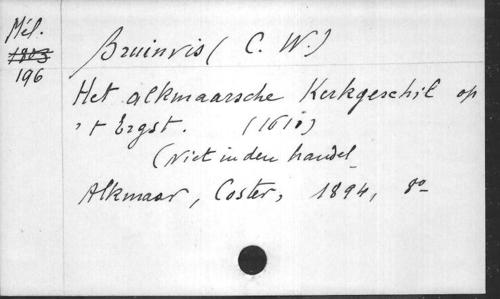 Mél.
1803
196
Bruinvis (C. W.)
Het alkmaarsche Kerkgeschil op
't Ergst. (1610)
(Niet in den handel
Alkmaar, Coster, 1894, 8o